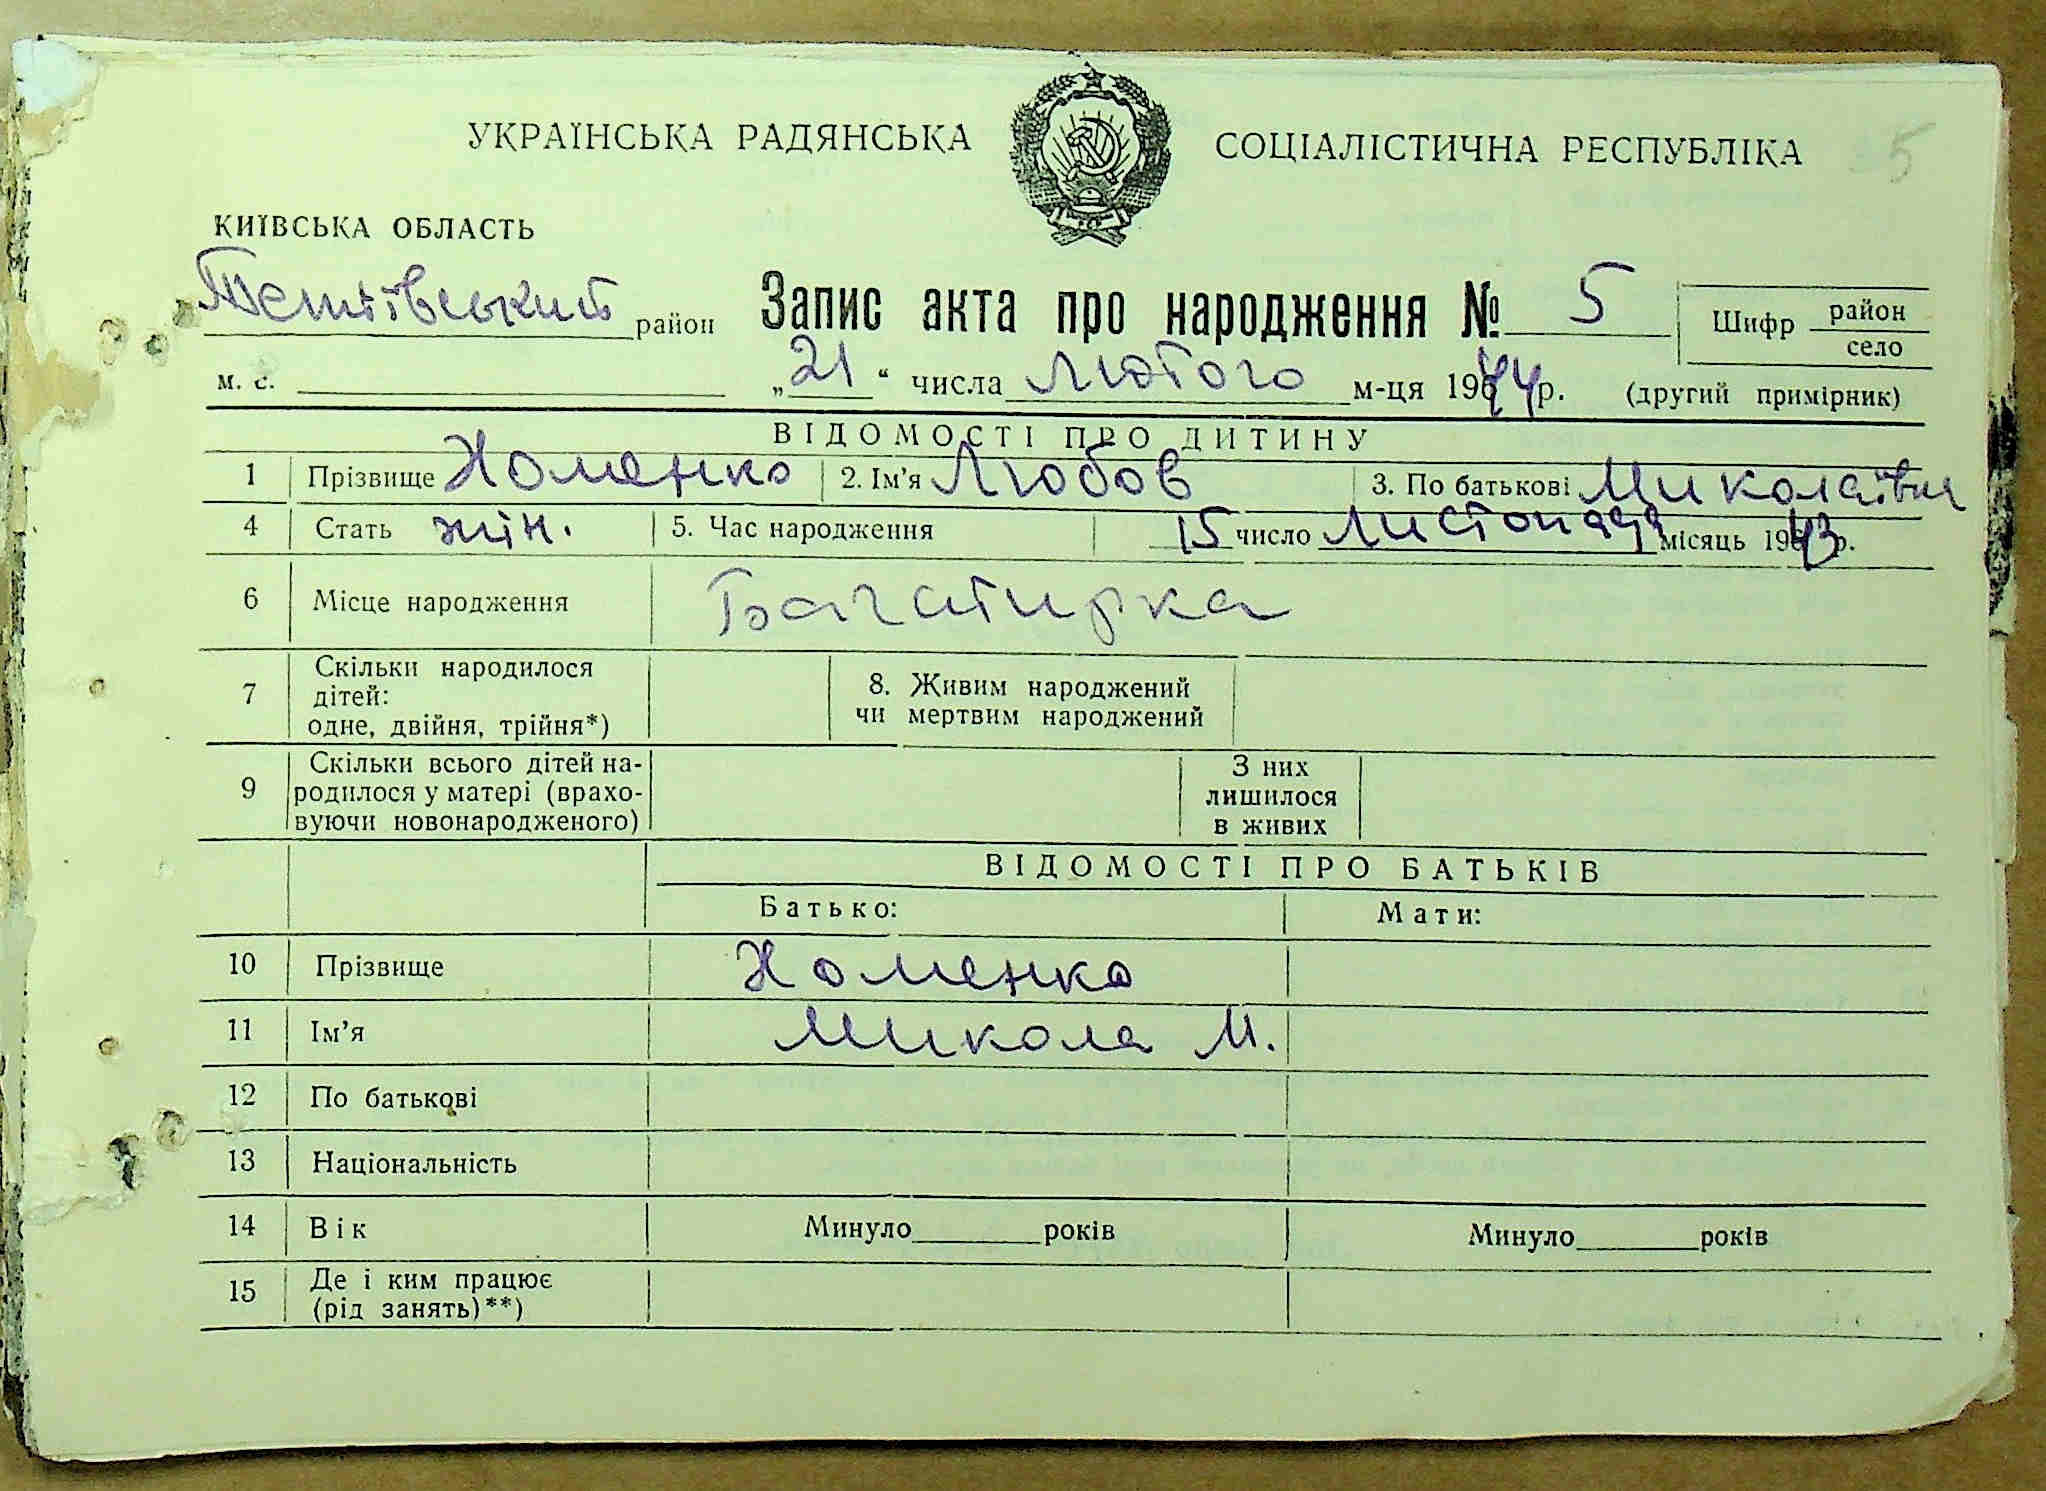 5
УКРАЇНСЬКА РАДЯНСЬКА СОЦІАЛІСТИЧНА РЕСПУБЛІКА
КИЇВСЬКА ОБЛАСТЬ
Тетіївський район
Запис акта про народження № 5
Шифр район село
м. с. „21“ числа Лютого м-ця 1944 р. (другий примірник)
ВІДОМОСТІ ПРО ДИТИНУ
1 Прізвище Хоменко 2. Ім'я Любов 3. По батькові Миколаївна
4 Стать жін. 5. Час народження 15 число Листопада місяць 1943 р.
6 Місце народження Багатирка
7 Скільки народилося дітей: одне, двійня, трійня*) 8. Живим народжений чи мертвим народжений
9 Скільки всього дітей народилося у матері (враховуючи новонародженого) З них лишилося в живих
ВІДОМОСТІ ПРО БАТЬКІВ
Батько: Мати:
10 Прізвище Хоменко
11 Ім'я Микола М.
12 По батькові
13 Національність
14 Вік Минуло______років Минуло______років
15 Де і ким працює (рід занять)**)